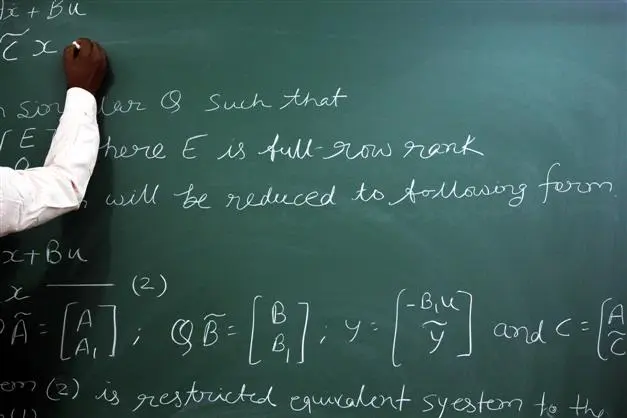 x + Bu
C̃ x
such that
[E where E is full-row rank
will be reduced to following form
x + Bu
x (2)
Ã = [A A₁] ; Q B̃ = [B B₁] ; y = [-B₁u ỹ] and C = [A C̃
(2) is restricted equivalent syestem to the